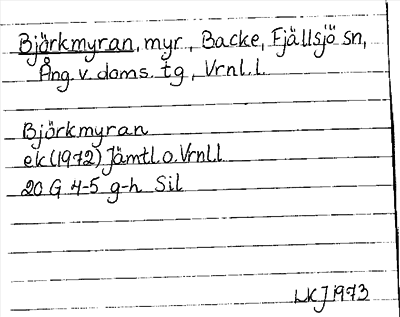 Björkmyran, myr, Backe, Fjällsjö sn,
Ång. v. doms. tg, Vrnl. l.
Björkmyran
ek (1972) Jämtl. o. Vrnl. l
20 G 4-5 g-h Sil
LKJ 1973